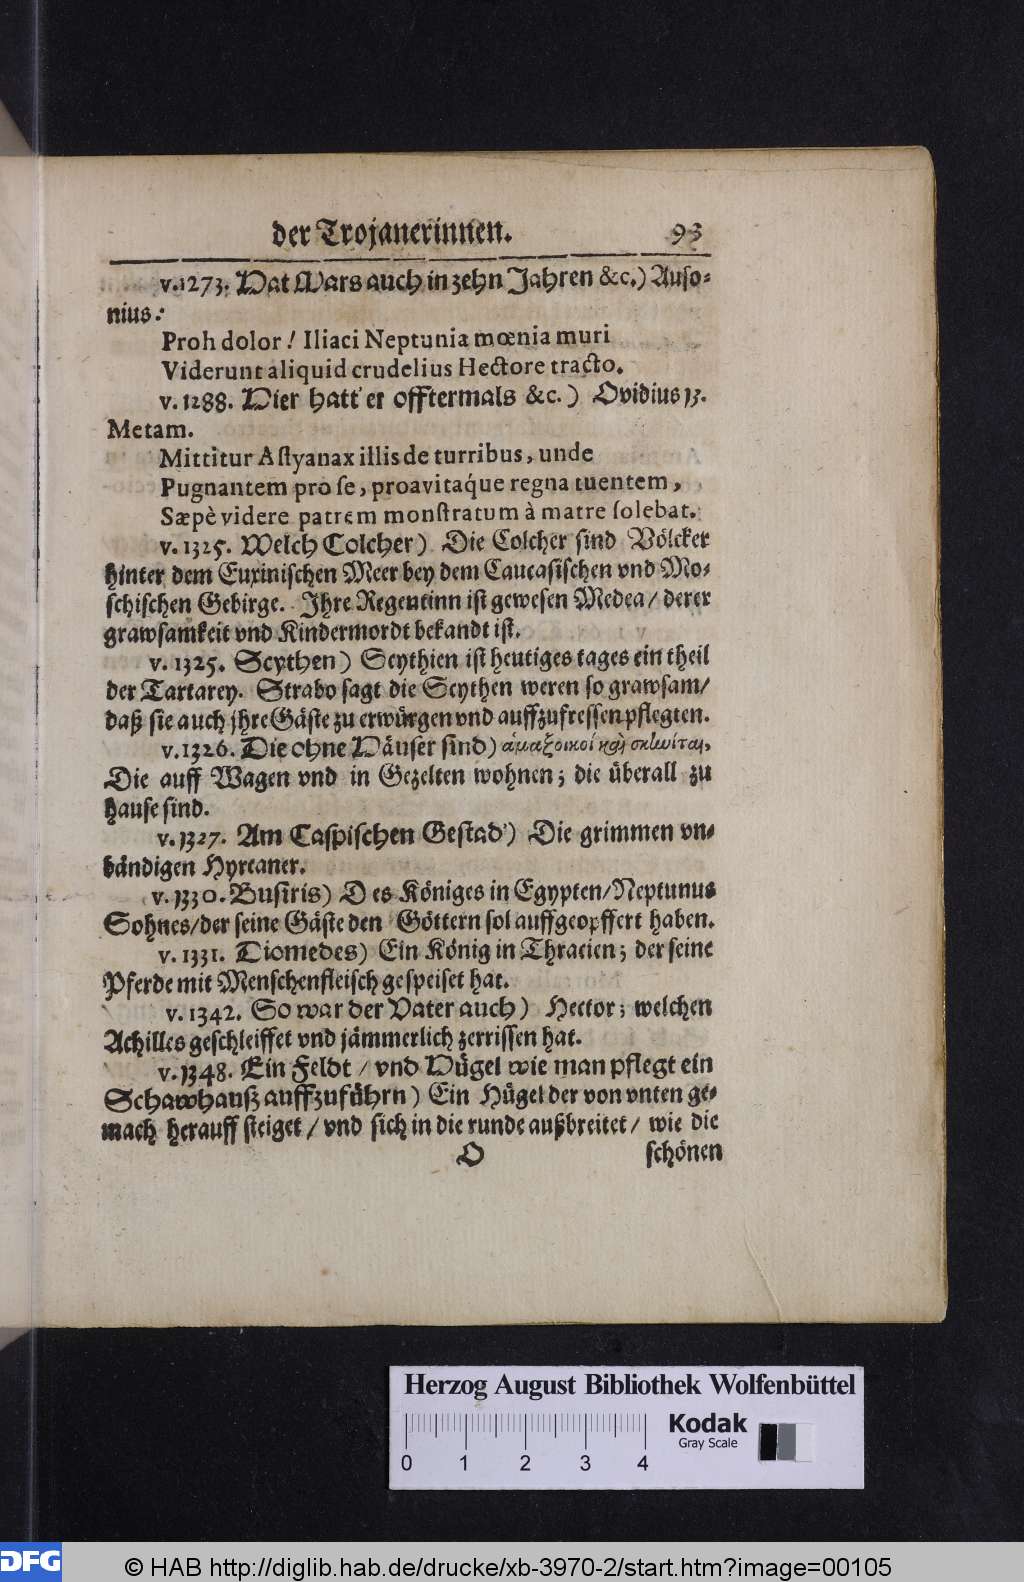 der Trojanerinnen. 93
v.1273. Hat Mars auch in zehn Jahren &c.) Auso-
nius:
Proh dolor! Iliaci Neptunia mœnia muri
Viderunt aliquid crudelius Hectore tracto.
v. 1288. Hier hatt' er offtermals &c.) Ovidius 13.
Metam.
Mittitur Astyanax illis de turribus, unde
Pugnantem pro se, proavitáque regna tuentem,
Sæpè videre patrem monstratum à matre solebat.
v. 1325. Welch Colcher) Die Colcher sind Völcker
hinter dem Euxinischen Meer bey dem Caucasischen vnd Mo-
schischen Gebirge. Jhre Regentinn ist gewesen Medea/ derer
grawsamkeit vnd Kindermordt bekandt ist.
v. 1325. Scythen) Scythien ist heutiges tages ein theil
der Tartarey. Strabo sagt die Scythen weren so grawsam/
daß sie auch jhre Gäste zu erwürgen vnd auffzufressen pflegten.
v.1326. Die ohne Häuser sind) ἁμαξοικοί καὶ σκηνίται,
Die auff Wagen vnd in Gezelten wohnen; die überall zu
hause sind.
v. 1327. Am Caspischen Gestad') Die grimmen vn-
bändigen Hyrcaner.
v. 1330. Busiris) Des Königes in Egypten/Neptunus
Sohnes/der seine Gäste den Göttern sol auffgeopffert haben.
v. 1331. Diomedes) Ein König in Thracien; der seine
Pferde mit Menschenfleisch gespeiset hat.
v. 1342. So war der Vater auch) Hector; welchen
Achilles geschleiffet vnd jämmerlich zerrissen hat.
v. 1348. Ein Feldt / vnd Hügel wie man pflegt ein
Schawhauß auffzuführn) Ein Hügel der von vnten ge-
mach herauff steiget / vnd sich in die runde außbreitet / wie die
O schönen
Herzog August Bibliothek Wolfenbüttel
Kodak
Gray Scale
0 1 2 3 4
DFG © HAB http://diglib.hab.de/drucke/xb-3970-2/start.htm?image=00105